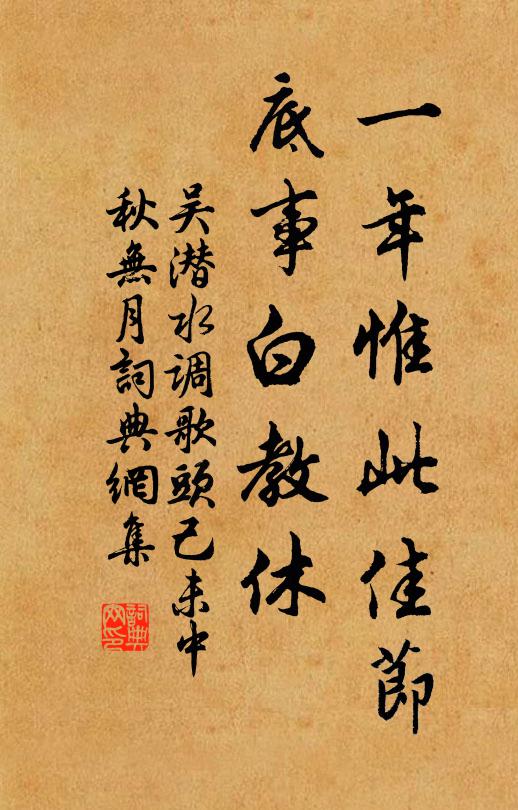 一年惟此佳節
底事白教休
吴潜水调歌頭己未中
秋無月詞典網集
詞典網印